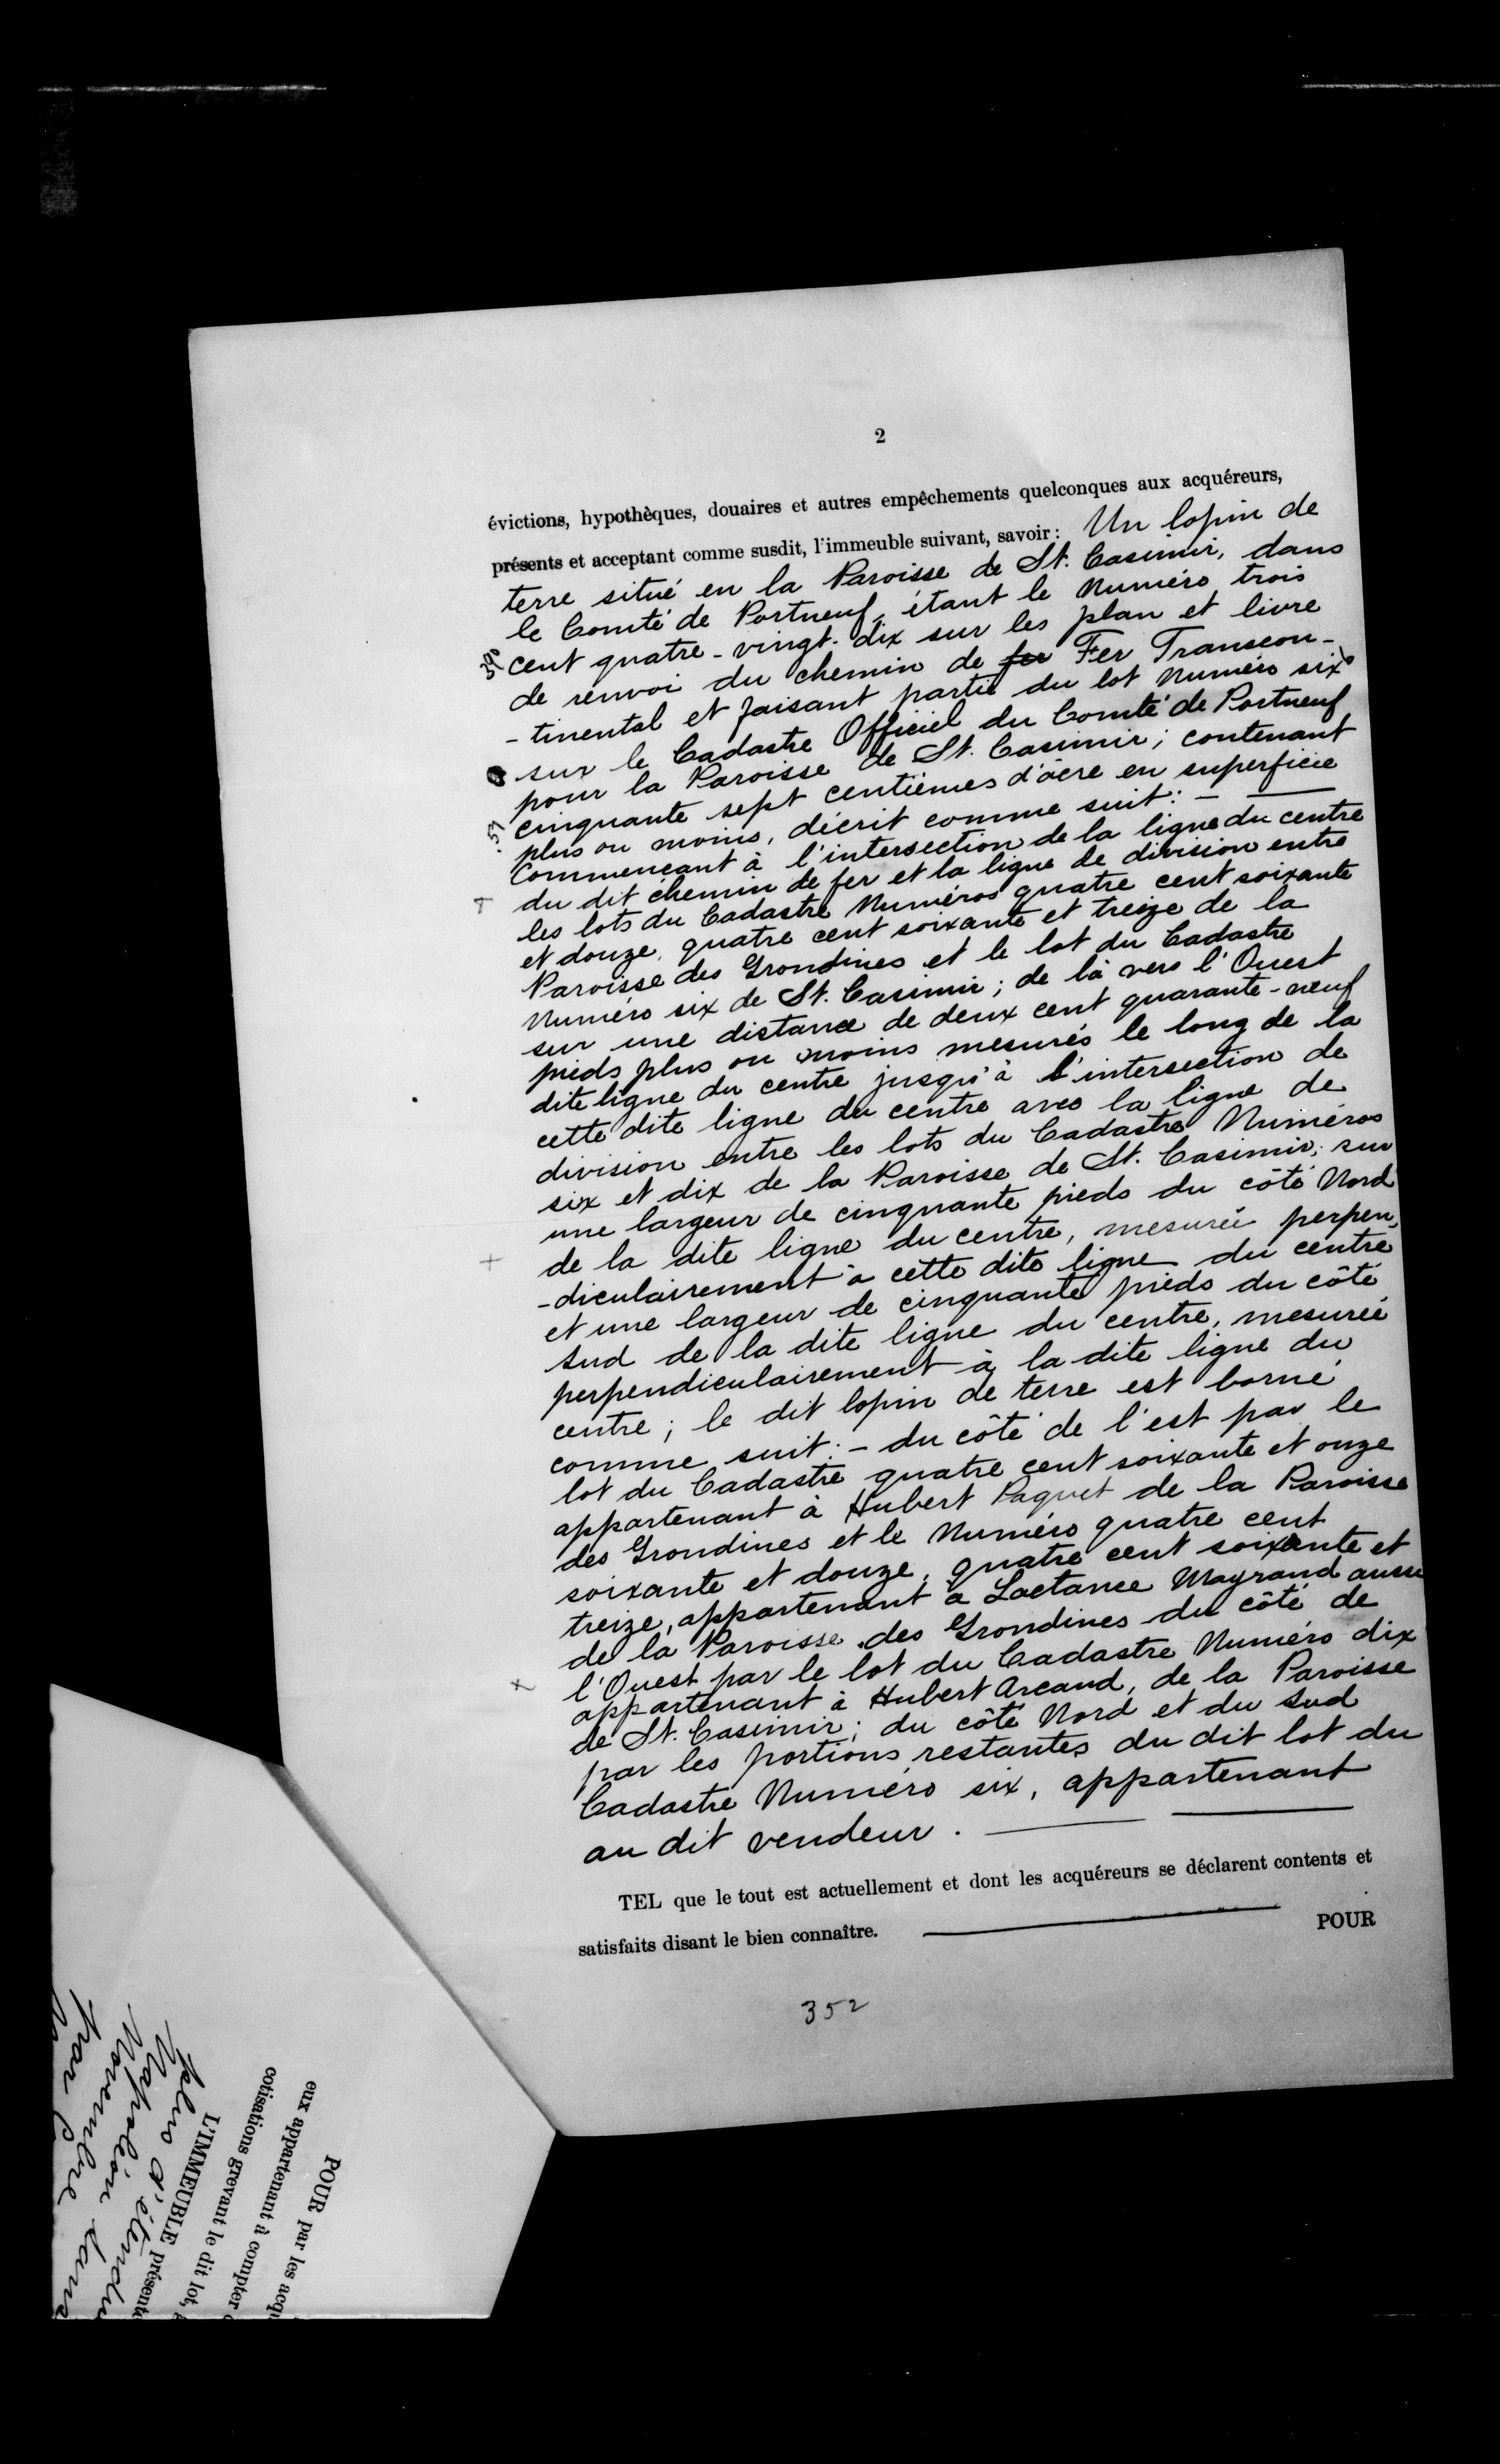 2
évictions, hypothèques, douaires et autres empêchements quelconques aux acquéreurs,
présents et acceptant comme susdit, l'immeuble suivant, savoir: Un lopin de
terre situé en la Paroisse de St. Casimir, dans
le Comté de Portneuf, étant le Numéro trois
390 cent quatre-vingt-dix sur les plan et livre
de renvoi du chemin de fer Fer Transcon-
-tinental et faisant partie du lot Numéro six
sur le Cadastre Officiel du Comté de Portneuf
pour la Paroisse de St. Casimir; contenant
.57 cinquante sept centièmes d'âcre en superficie
plus ou moins, décrit comme suit: —
Commençant à l'intersection de la ligne du centre
+ du dit chemin de fer et la ligne de division entre
les lots du Cadastre Numéros quatre cent soixante
et douze, quatre cent soixante et treize de la
Paroisse des Grondines et le lot du Cadastre
Numéro six de St. Casimir; de là vers l'Ouest
sur une distance de deux cent quarante-neuf
pieds plus ou moins mesurés le long de la
dite ligne du centre jusqu'à l'intersection de
cette dite ligne du centre avec la ligne de
division entre les lots du Cadastre Numéros
six et dix de la Paroisse de St. Casimir; sur
une largeur de cinquante pieds du côté Nord
+ de la dite ligne du centre, mesurée perpen-
-diculairement à cette dite ligne du centre
et une largeur de cinquante pieds du côté
Sud de la dite ligne du centre, mesurée
perpendiculairement à la dite ligne du
centre; le dit lopin de terre est borné
comme suit:- du côté de l'est par le
lot du Cadastre quatre cent soixante et onze
appartenant à Hubert Paquet de la Paroisse
des Grondines et le Numéro quatre cent
soixante et douze, quatre cent soixante et
treize, appartenant à Lactance Mayrand aussi
de la Paroisse des Grondines du côté de
x l'Ouest par le lot du Cadastre Numéro dix
appartenant à Hubert Arcand, de la Paroisse
de St. Casimir; du côté Nord et du Sud
par les portions restantes du dit lot du
Cadastre Numéro six, appartenant
au dit vendeur.
TEL que le tout est actuellement et dont les acquéreurs se déclarent contents et
satisfaits disant le bien connaître.
POUR
352
POUR par les acqu
eux appartenant à compter
cotisations grevant le dit lot,
L'IMMEUBLE présent
plus d'étendu
Napoléon
Novembre dans
par